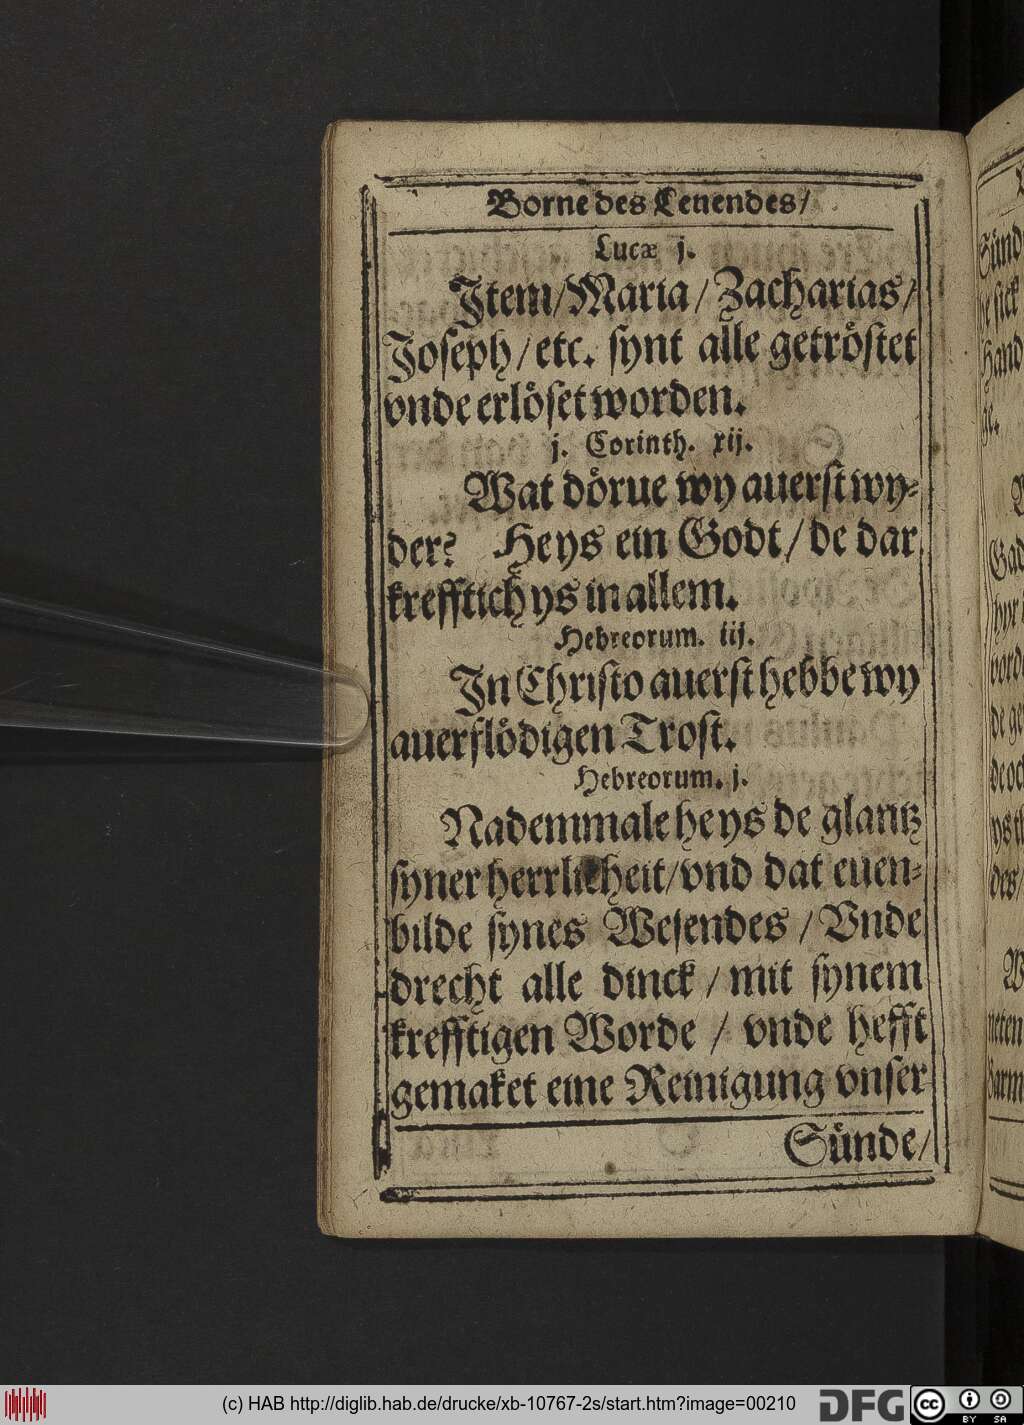 Borne des Leuendes/
Lucæ j.
Jtem/Maria/Zacharias/
Joseph/etc. synt alle getröstet
vnde erlöset worden.
j. Corinth. xij.
Wat dörue wy auerst wy-
der? He ys ein Godt/de dar
krefftich ys in allem.
Hebreorum. iij.
Jn Christo auerst hebbe wy
auerflödigen Trost.
Hebreorum. j.
Nademmale he ys de glantz
syner herrlicheit/vnd dat euen-
bilde synes Wesendes/Vnde
drecht alle dinck/mit synem
krefftigen Worde/vnde hefft
gemaket eine Reinigung vnser
Sünde/
(c) HAB http://diglib.hab.de/drucke/xb-10767-2s/start.htm?image=00210
DFG
cc BY SA